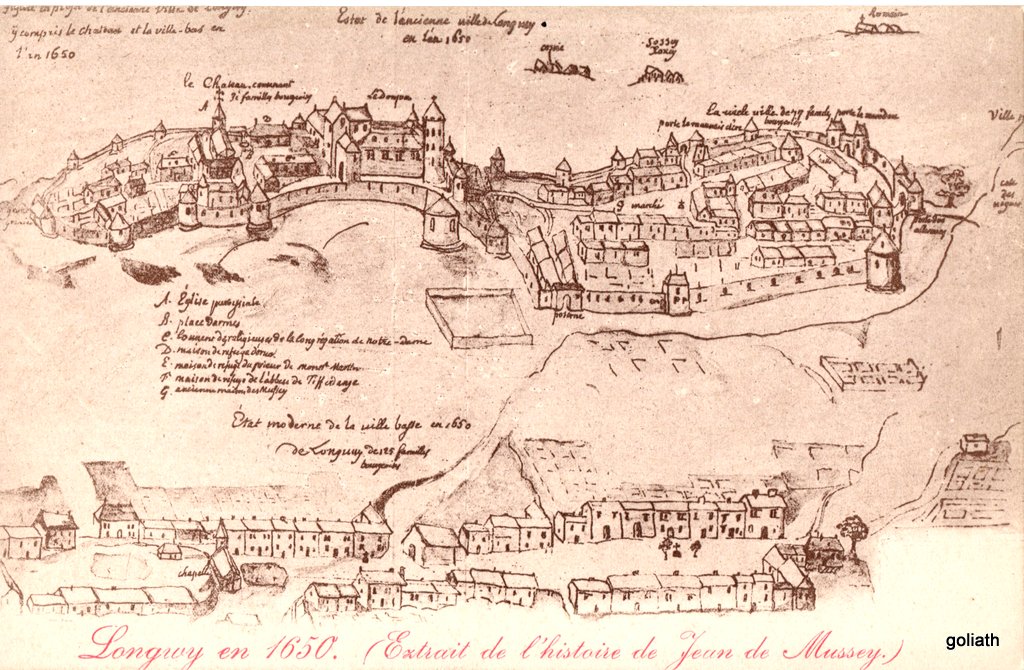 de l'ancienne ville de Longwy.
y compris le chateau et la ville-bas en
l'en 1650
Estat de l'ancienne ville de Longwy
en l'an 1650
Romain
cosne
le Chateau contenant
31 familly bourgeois
A
Ledonjon
La vielle ville de 79 familly
bourgeoise
porte
Ville
g marché
posterne
A. Église paroyssiale
B. place darmes
C. Couvent des religieuses de la Congrégation de notre-dame
D. maison de refuge
E. maison de refuge du prieur de mont St Martin
F. maison de refuge de l'abbés de
G. ancienne maison des Mussey
État moderne de la ville basse en 1650
de Longwy de 125 familles
bourgeoises
chapelle
Longwy en 1650. (Extrait de l'histoire de Jean de Mussey.)
goliath